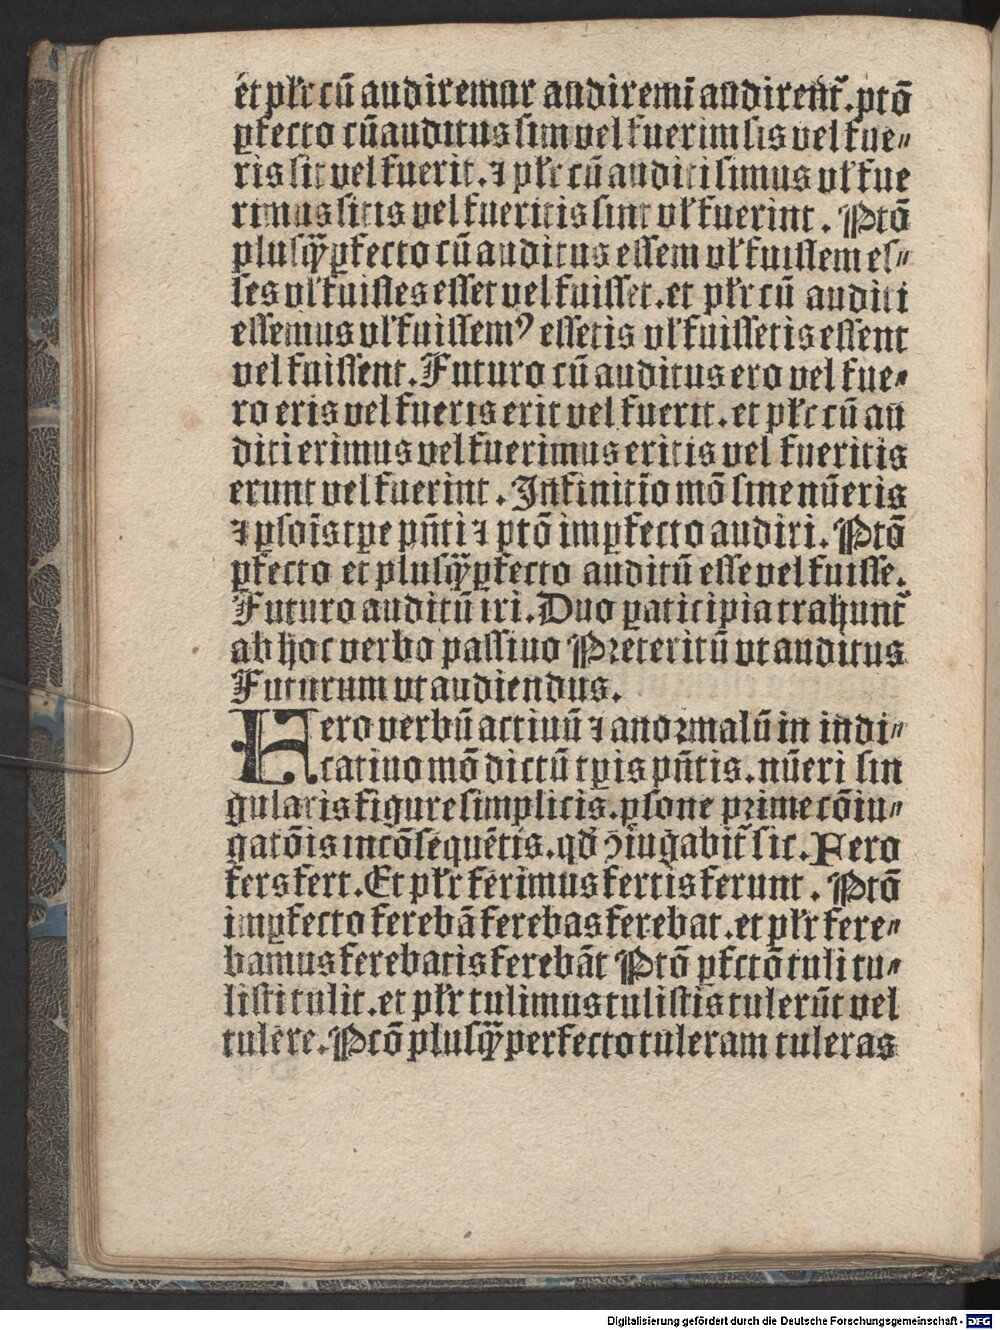 et płr cū audiremur audiremī audirent̃. ptō
ꝑfecto cū auditus sim vel fuerim sis vel fue⸗
ris sit vel fuerit. ⁊ płr cū auditi simus vł fue
rimus sitis vel fueritis sint vł fuerint. Ptō
plusꝙ̃ꝑfecto cū auditus essem vł fuissem es⸗
ses vł fuisses esset vel fuisset. et płr cū auditi
essemus vł fuissemꝰ essetis vł fuissetis essent
vel fuissent. Futuro cū auditus ero vel fue⸗
ro eris vel fueris erit vel fuerit. et płr cū au
diti erimus vel fuerimus eritis vel fueritis
erunt vel fuerint. Infinitīo mō sine nūeris
⁊ ꝑsoīs tꝑe pñti ⁊ ptō imꝑfecto audiri. Ptō
ꝑfecto et plusꝙ̃ꝑfecto auditū esse vel fuisse.
Futuro auditū iri. Duo ꝑaticipia trahunt̃
ab hoc verbo passiuo Preteritū vt auditus
Futurum vt audiendus.
Fero verbū actiuū ⁊ anormalū in indi⸗
catiuo mō dictū tꝑis pñtis. nūeri sin
gularis figure simplicis. ꝑsone prime cōiu⸗
gatōis incōsequētis. qđ ꝯiugabit̃ sic. Fero
fers fert. Et płr ferimus fertis ferunt. Ptō
imꝑfecto ferebā ferebas ferebat. et płr fere⸗
bamus ferebatis ferebāt Ptō ꝑfctō tuli tu⸗
listi tulit. et płr tulimus tulistis tulerūt vel
tulere. Ptō plusꝙ̃perfecto tuleram tuleras
Digitalisierung gefördert durch die Deutsche Forschungsgemeinschaft - DFG